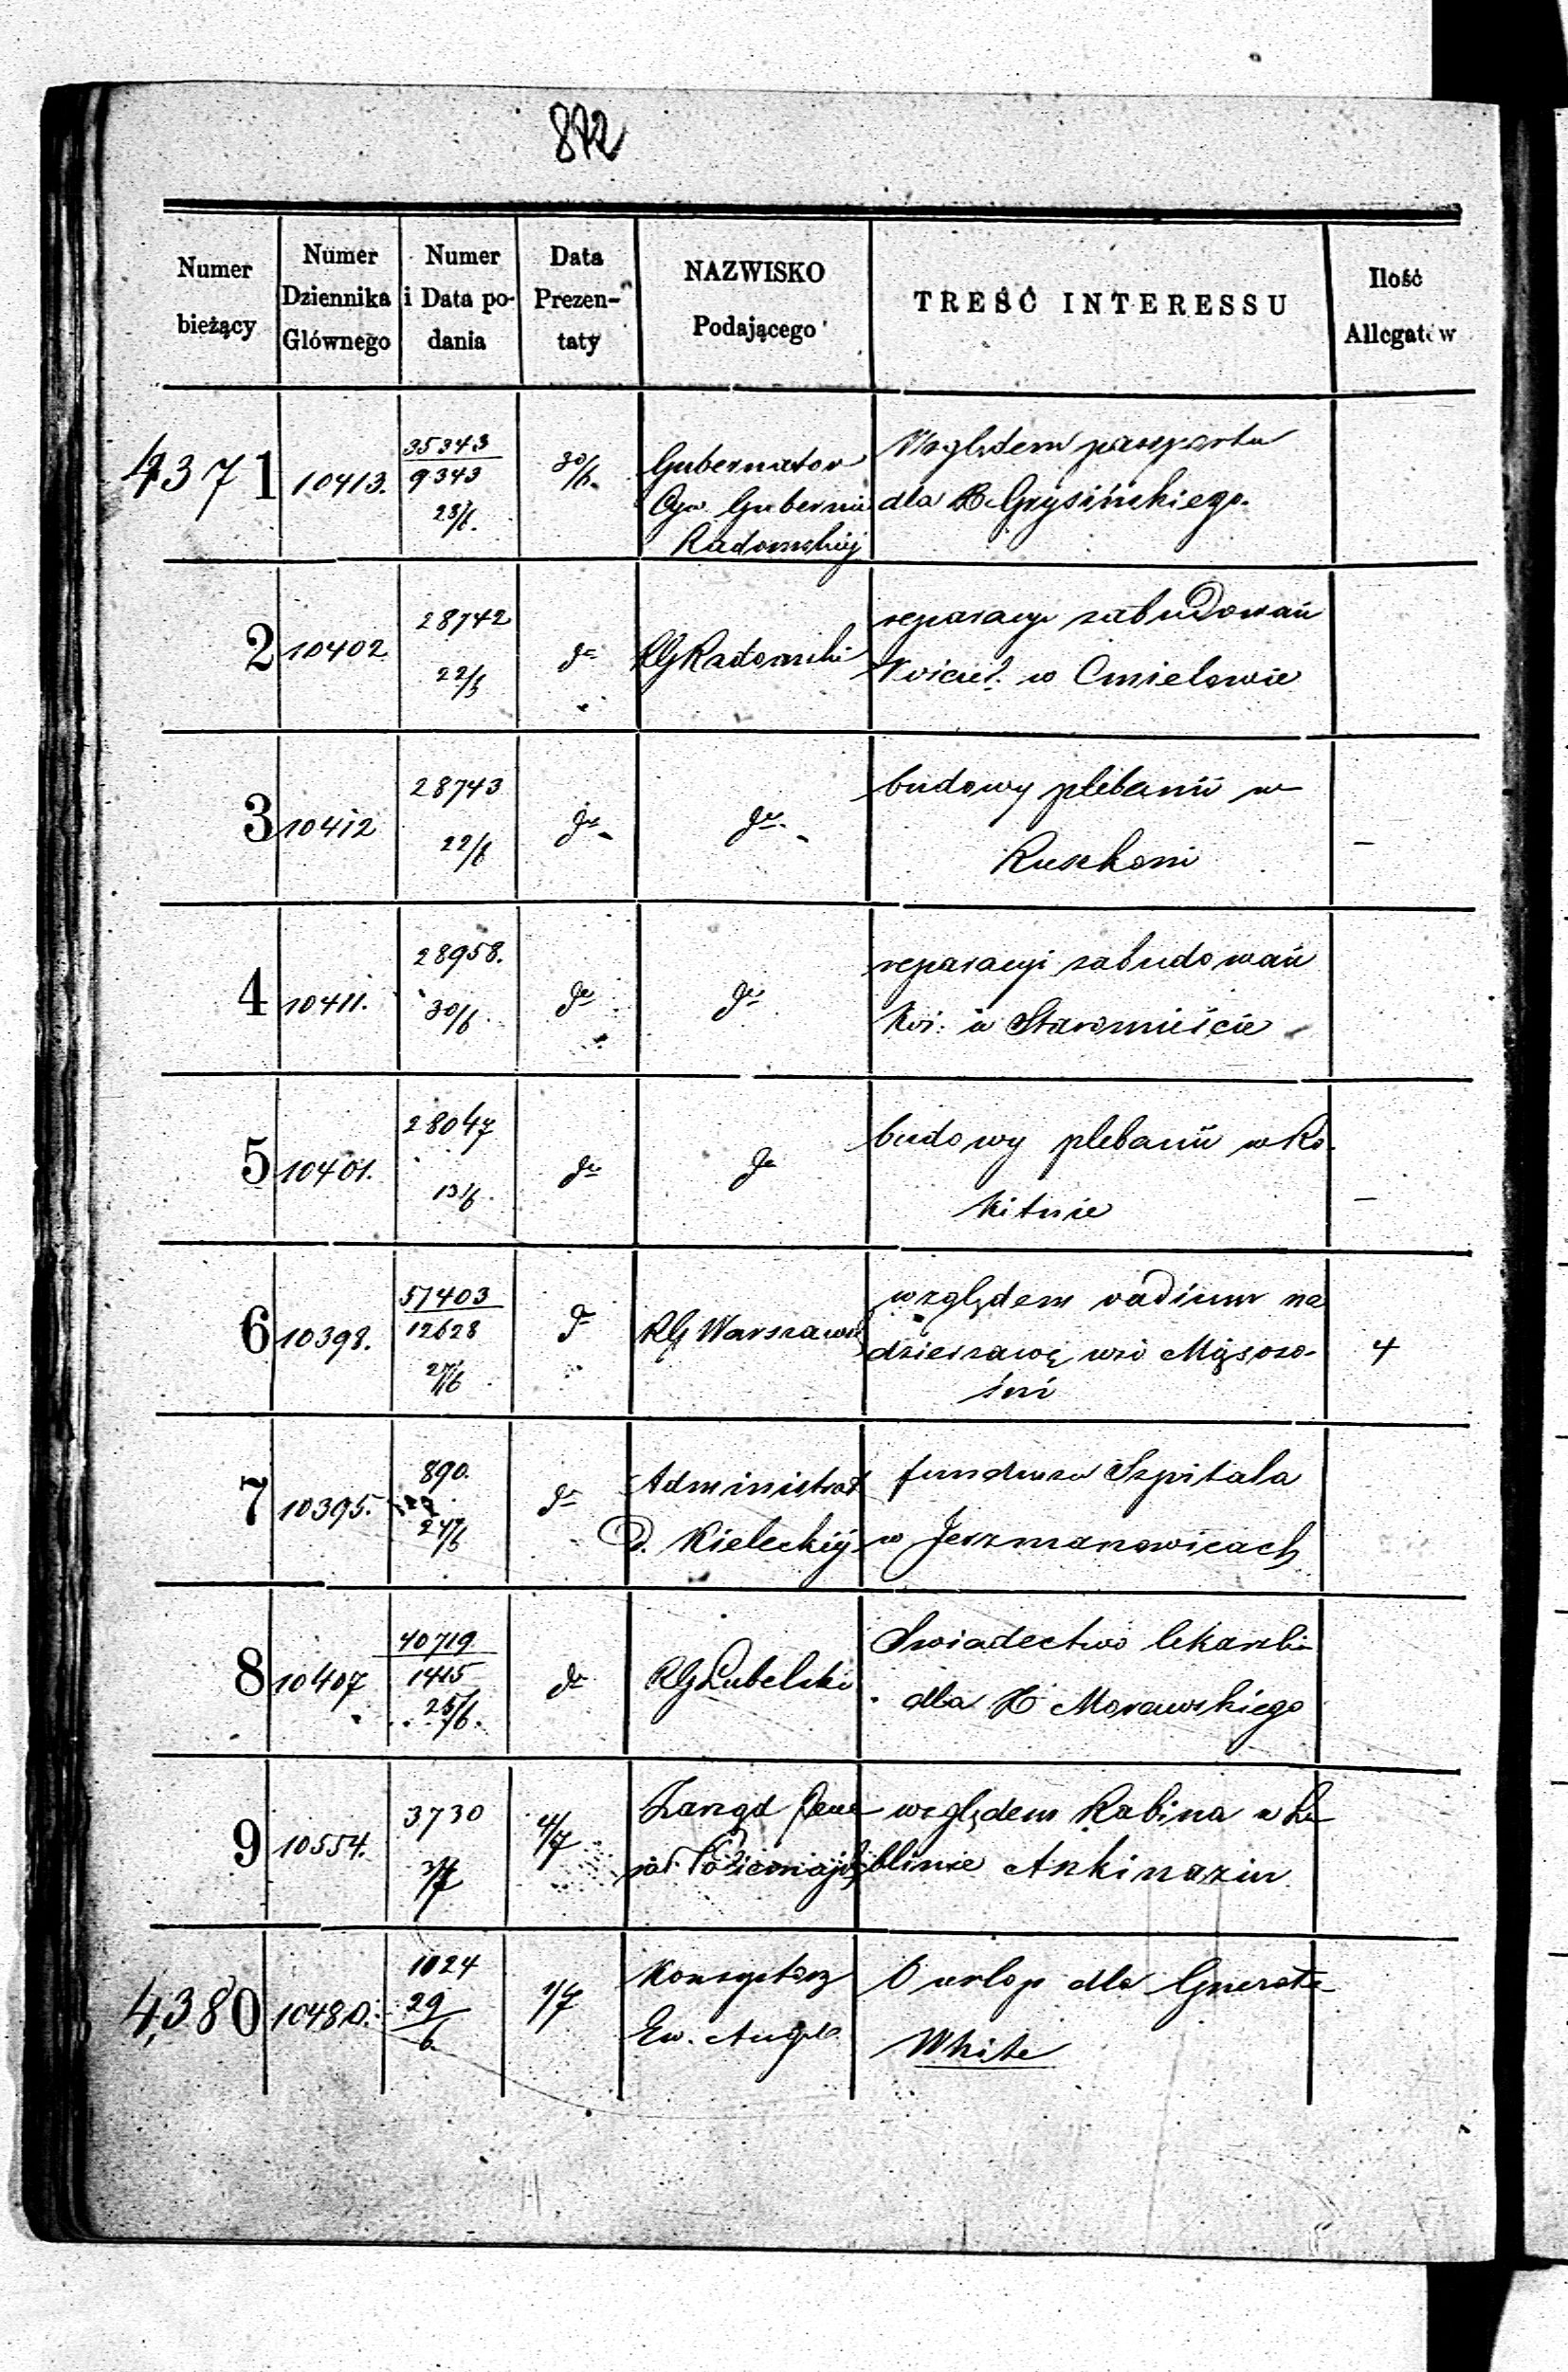 872
Numer bieżący | Numer Dziennika Głównego | Numer i Data podania | Data Prezentaty | NAZWISKO Podającego | TREŚĆ INTERESSU | Ilość Allegatów
4371 | 10413. | 35343 / 9343 23/6. | 30/6. | Gubernator Cyw. Gubernii Radomskiej | Względem paszportu dla X. Grysińskiego.
2 | 10402 | 28742 22/6 | do | RG Radomski | reparacyi zabudowań Kościel. w Cmielowie
3 | 10412 | 28743 22/6 | do | do | budowy plebanii w Ruszkowi | –
4 | 10411. | 28958. 30/6. | do | do | reparacyi zabudowań Koś: w Staromieście
5 | 10401. | 28047 13/6. | do | do | budowy plebanii w Rokitnie | –
6 | 10398. | 57403 / 12628 27/6 | do | RG Warszaws | względem vadium na dzierzawę wsi | 4
7 | 10395. | 890. 24/6 | do | Administrat D. Kieleckiej | funduszu Szpitala w Jerzmanowicach
8 | 10407 | 40719 / 1415 25/6. | do | RG Lubelski | Swiadectwo lekarskie dla X Morawskiego
9 | 10554. | 3730 2/7 | 4/7 | Zarząd | względem Rabina w Lublinie Askinaziu
4,380 | 10480. | 1024 29/6. | 1/7 | Konsystorz Ew. Augsb. | O urlop dla Generała White